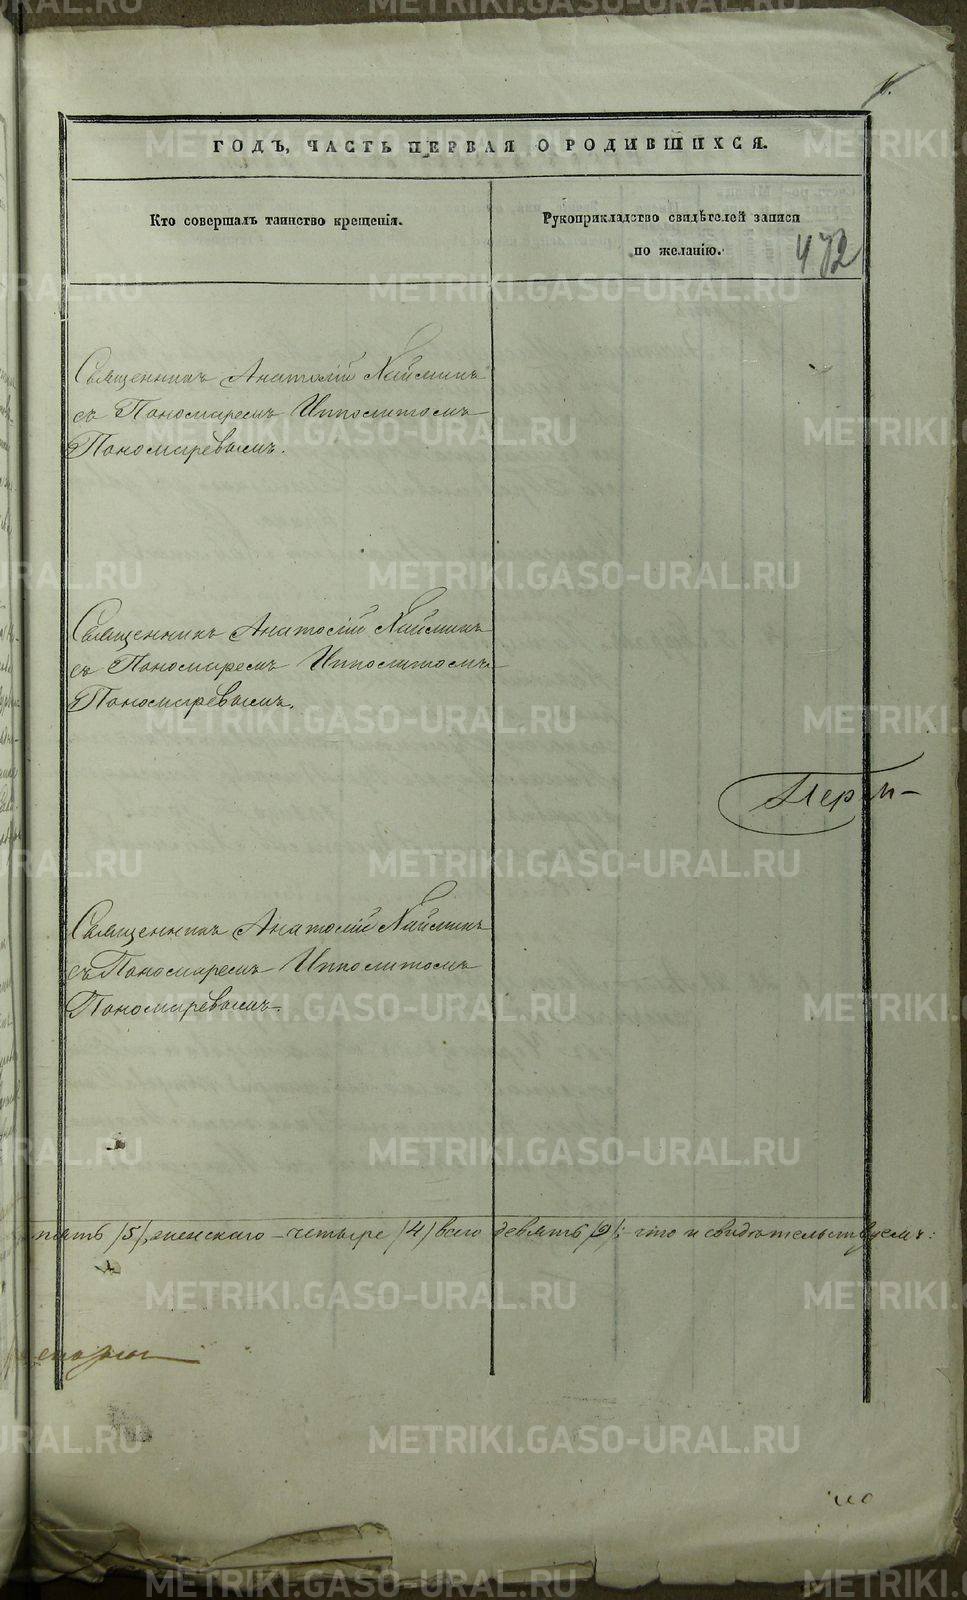 ГОДЪ, ЧАСТЬ ПЕРВАЯ О РОДИВШИХСЯ.
Кто совершалъ таинство крещенія.
Рукоприкладство свидѣтелей записи
по желанію.
472
Священникъ Анатолій Наймикъ
съ Пономаремъ Ипполитомъ
Пономаревымъ.
Священникъ Анатолій Наймикъ
съ Пономаремъ Ипполитомъ
Пономаревымъ.
Перм-
Священникъ Анатолій Наймикъ
съ Пономаремъ Ипполитомъ
Пономаревымъ.
пять /5/, женскаго - четыре /4/ всего девять /9/; что и свидѣтельствуемъ:
METRIKI.GASO-URAL.RU